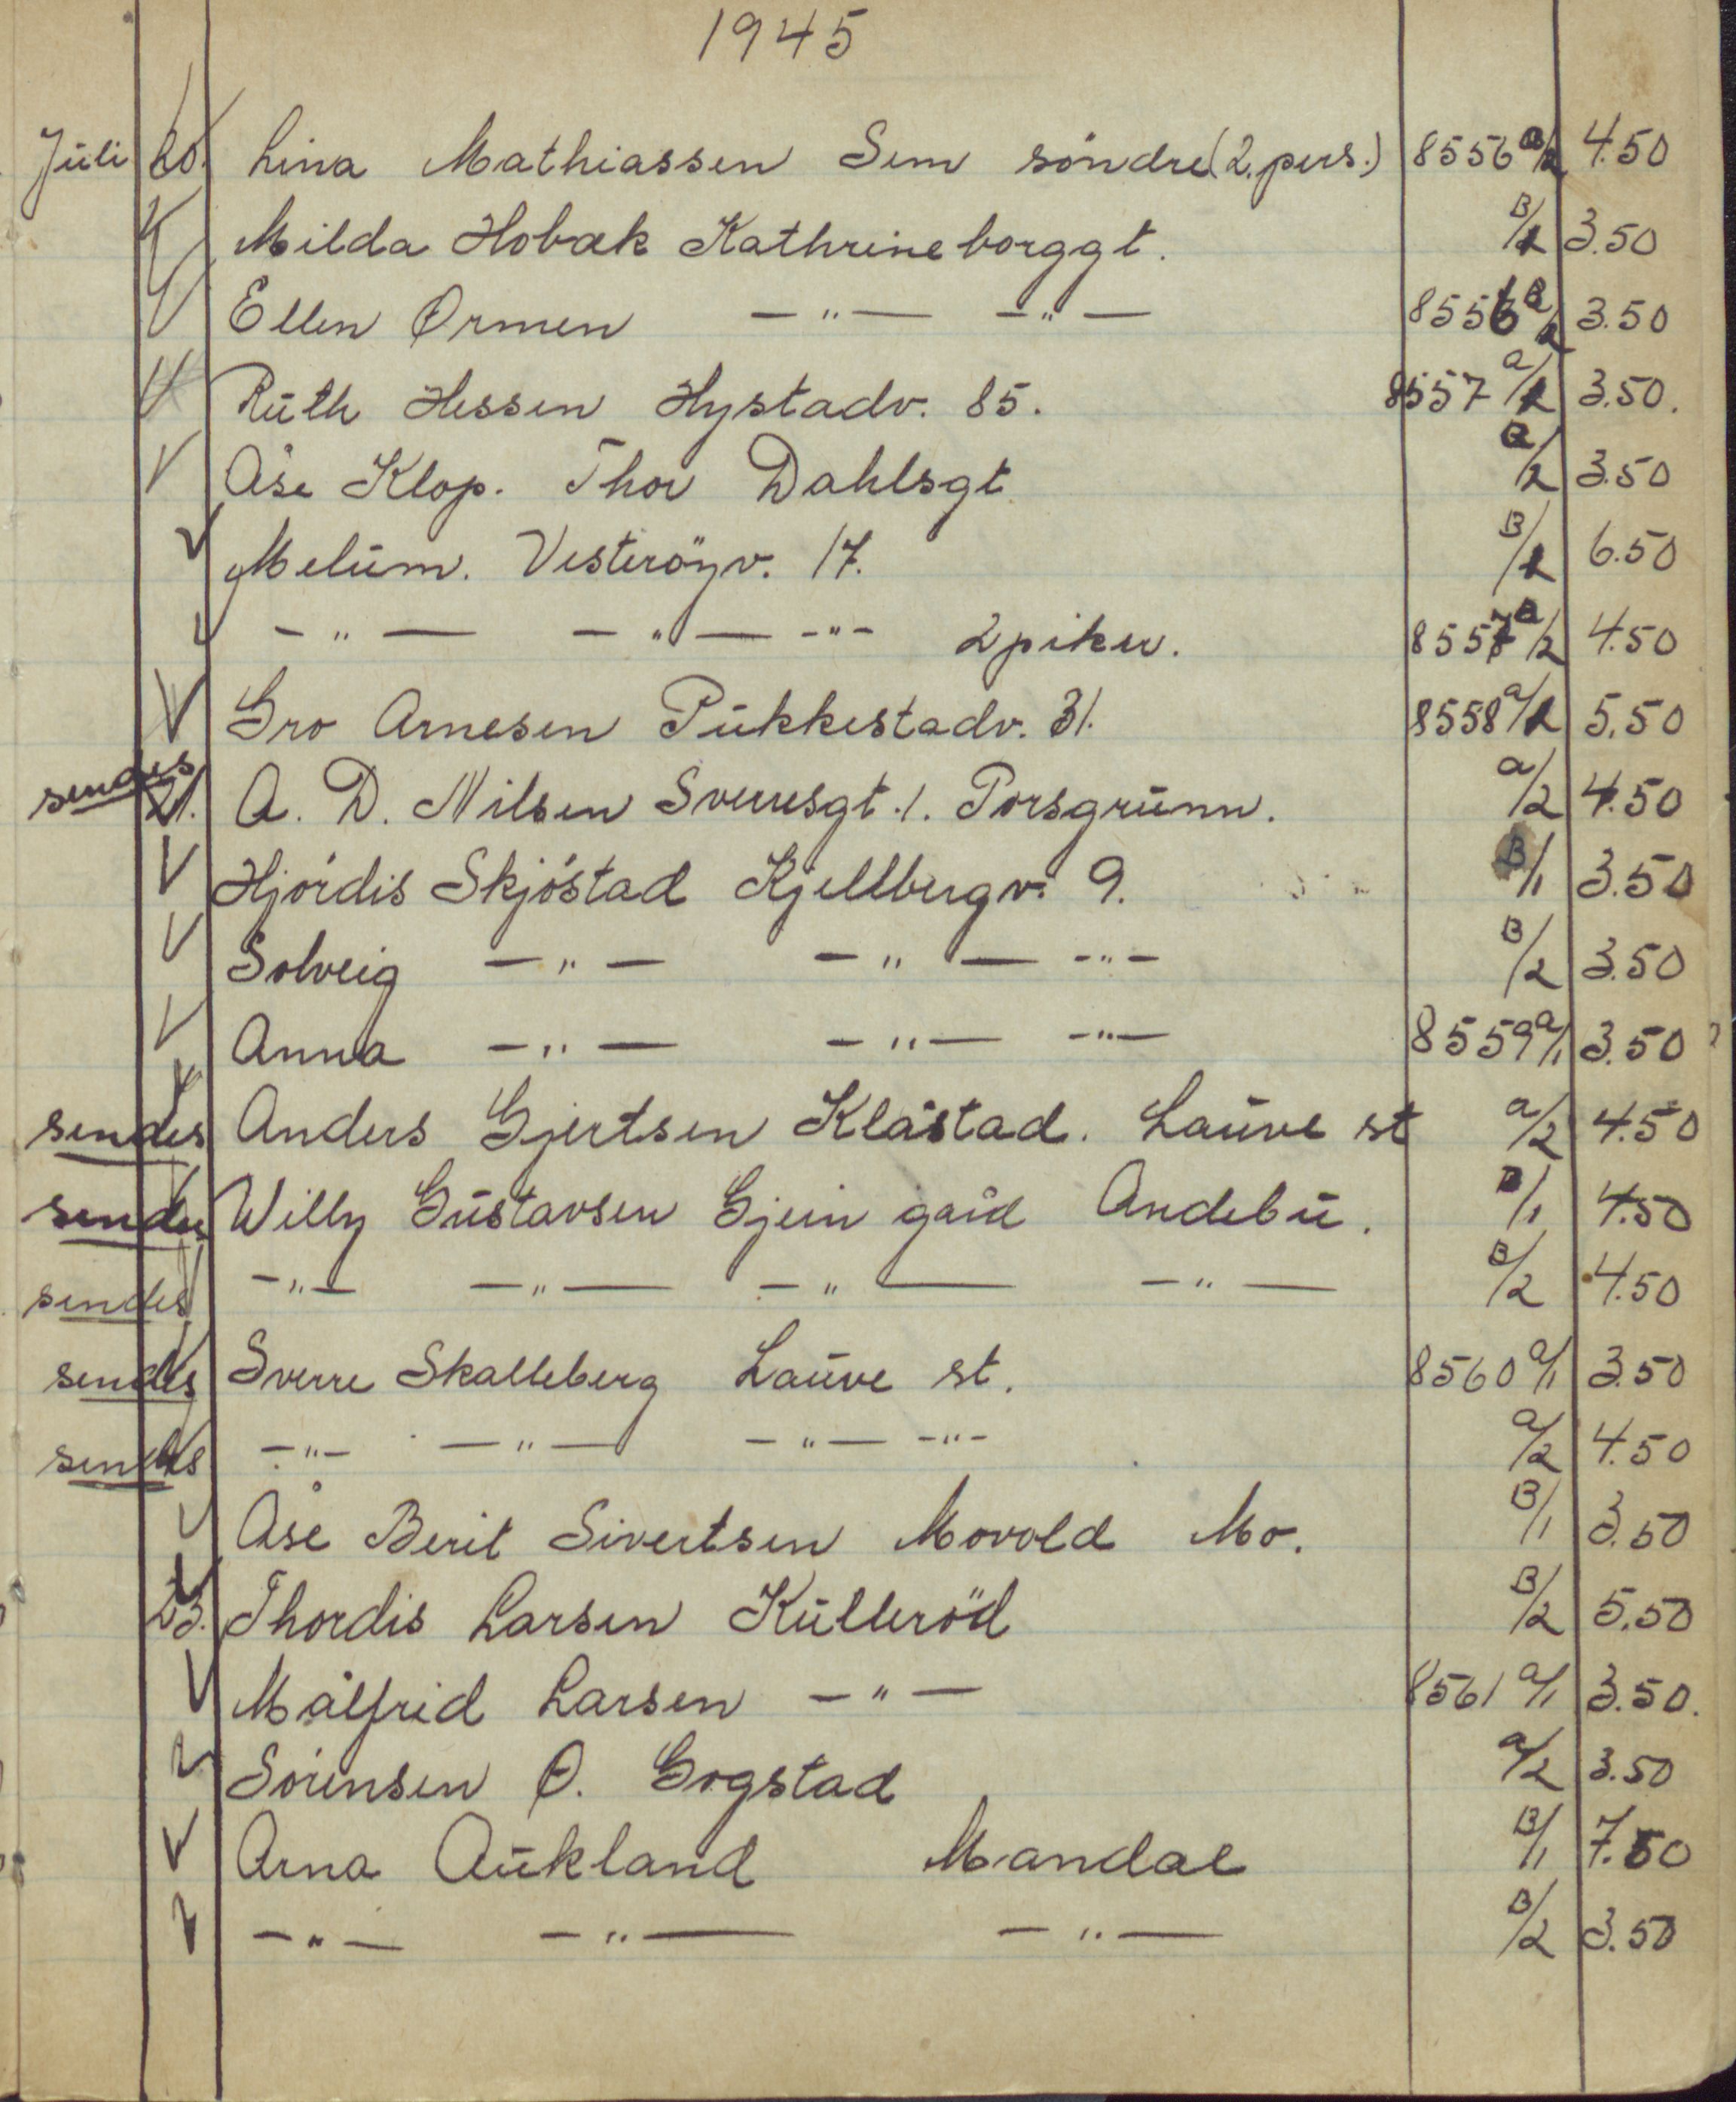 1945
Juli 20. Lina Mathiassen Sem söndre (2. pers.) 8556 a/2 4.50
Milda Hobæk Kathrineborggt. B/1 3.50
Ellen Ormen —"— —"— 8556 B/2 3.50
Ruth Hessen Hystadv. 85. 8557 a/1 3.50.
Åse Klop. Thor Dahlsgt a/2 3.50
Melum. Vesteröyv. 17. B/1 6.50
—"— —"— -"- 2 piker. 8557 B/2 4.50
Gro Arnesen Pukkestadv. 31. 8558 a/1 5.50
sendes 21. A. D. Nilsen Sverresgt. 1. Porsgrunn. a/2 4.50
Hjördis Skjöstad Kjellbergv. 9. B/1 3.50
Solveig —"— —"— -"- B/2 3.50
Anna —"— —"— -"- 8559 a/1 3.50
sendes Anders Gjertsen Klåstad. Lauve st a/2 4.50
sendes Willy Gustavsen Gjein gård Andebu. B/1 4.50
sendes —"— —"— —"— —"— B/2 4.50
sendes Sverre Skalleberg Lauve st. 8560 a/1 3.50
sendes —"— —"— —"— -"- a/2 4.50
Åse Berit Sivertsen Movold Mo. B/1 3.50
23. Thordis Larsen Kulleröd B/2 5.50
Målfrid Larsen —"— 8561 a/1 3.50.
Sörensen O. Gogstad a/2 3.50
Arna Aukland Mandal B/1 7.50
—"— —"— —"— B/2 3.50